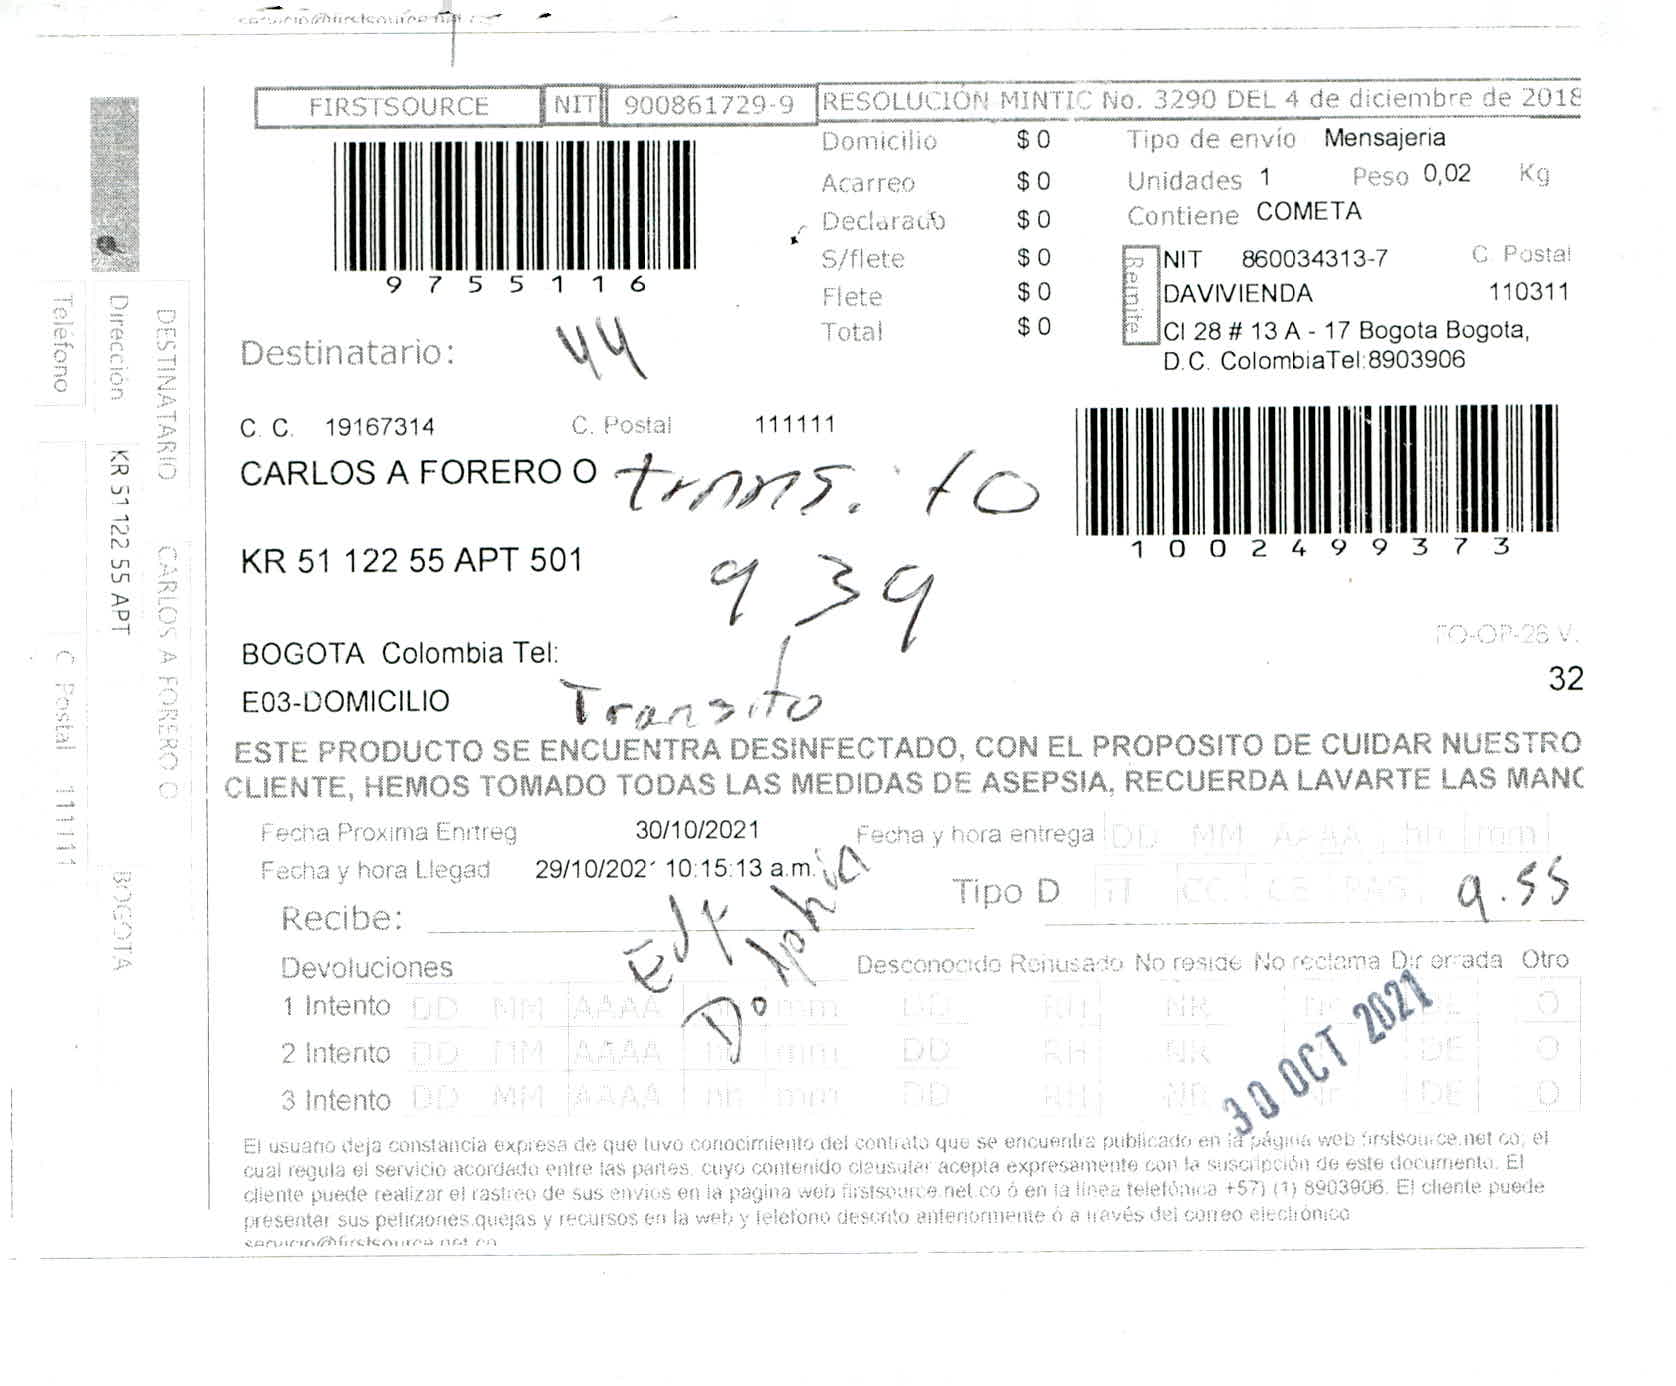 FIRSTSOURCE NIT 900861729-9 RESOLUCIÓN MINTIC No. 3290 DEL 4 de diciembre de 2018
9755116
Domicilio $ 0
Acarreo $ 0
Declarado $ 0
S/flete $ 0
Flete $ 0
Total $ 0
Tipo de envío Mensajeria
Unidades 1 Peso 0,02 Kg
Contiene COMETA
Remite
NIT 860034313-7 C. Postal
DAVIVIENDA 110311
Cl 28 # 13 A - 17 Bogota Bogota,
D.C. ColombiaTel:8903906
Destinatario: 44
C. C. 19167314 C. Postal 111111
CARLOS A FORERO O transito
10024999373
KR 51 122 55 APT 501
939
FO-OP-26 V.
32
BOGOTA Colombia Tel:
E03-DOMICILIO Transito
ESTE PRODUCTO SE ENCUENTRA DESINFECTADO, CON EL PROPOSITO DE CUIDAR NUESTRO
CLIENTE, HEMOS TOMADO TODAS LAS MEDIDAS DE ASEPSIA, RECUERDA LAVARTE LAS MANO
Fecha Proxima Entreg 30/10/2021 Fecha y hora entrega DD MM AAAA hh mm
Fecha y hora Llegad 29/10/2021 10:15:13 a.m.
Tipo D TI CC CE PAS 9.55
Recibe:
Devoluciones Desconocido Rehusado No reside No reclama Dir errada Otro
1 Intento DD MM AAAA hh mm DD RH NR nr DE O
2 Intento DD MM AAAA hh mm DD RH NR nr DE O
3 Intento DD MM AAAA hh mm DD RH NR nr DE O
30 OCT 2021
El usuario deja constancia expresa de que tuvo conocimiento del contrato que se encuentra publicado en la página web firstsource.net co; el
cual regula el servicio acordado entre las partes, cuyo contenido clausular acepta expresamente con la suscripción de este documento. El
cliente puede realizar el rastreo de sus envios en la página web firstsource.net.co ó en la línea telefónica +57) (1) 8903906. El cliente puede
presentar sus peticiones,quejas y recursos en la web y telefono descrito anteriormente ó a través del correo electrónico
servicio@firstsource.net.co
DESTINATARIO CARLOS A FORERO O
Dirección KR 51 122 55 APT BOGOTA
Teléfono C Postal 111111